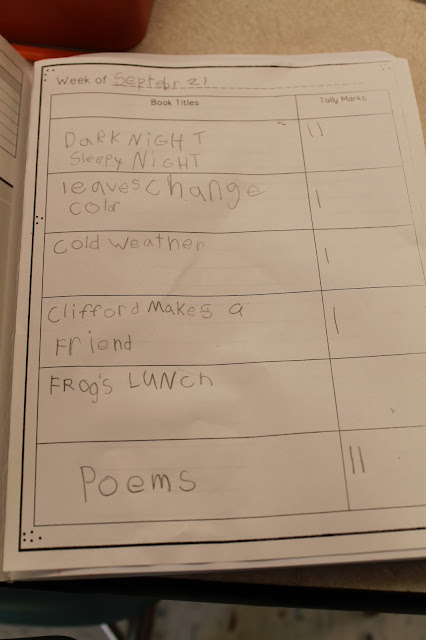 Week of Septebr 21
Book Titles
Tally Marks
DaRK NIGHT
Sleepy NIGHT
leaves change
color
cold weather
Clifford Makes a
Friend
FROg's LUNch
Poems